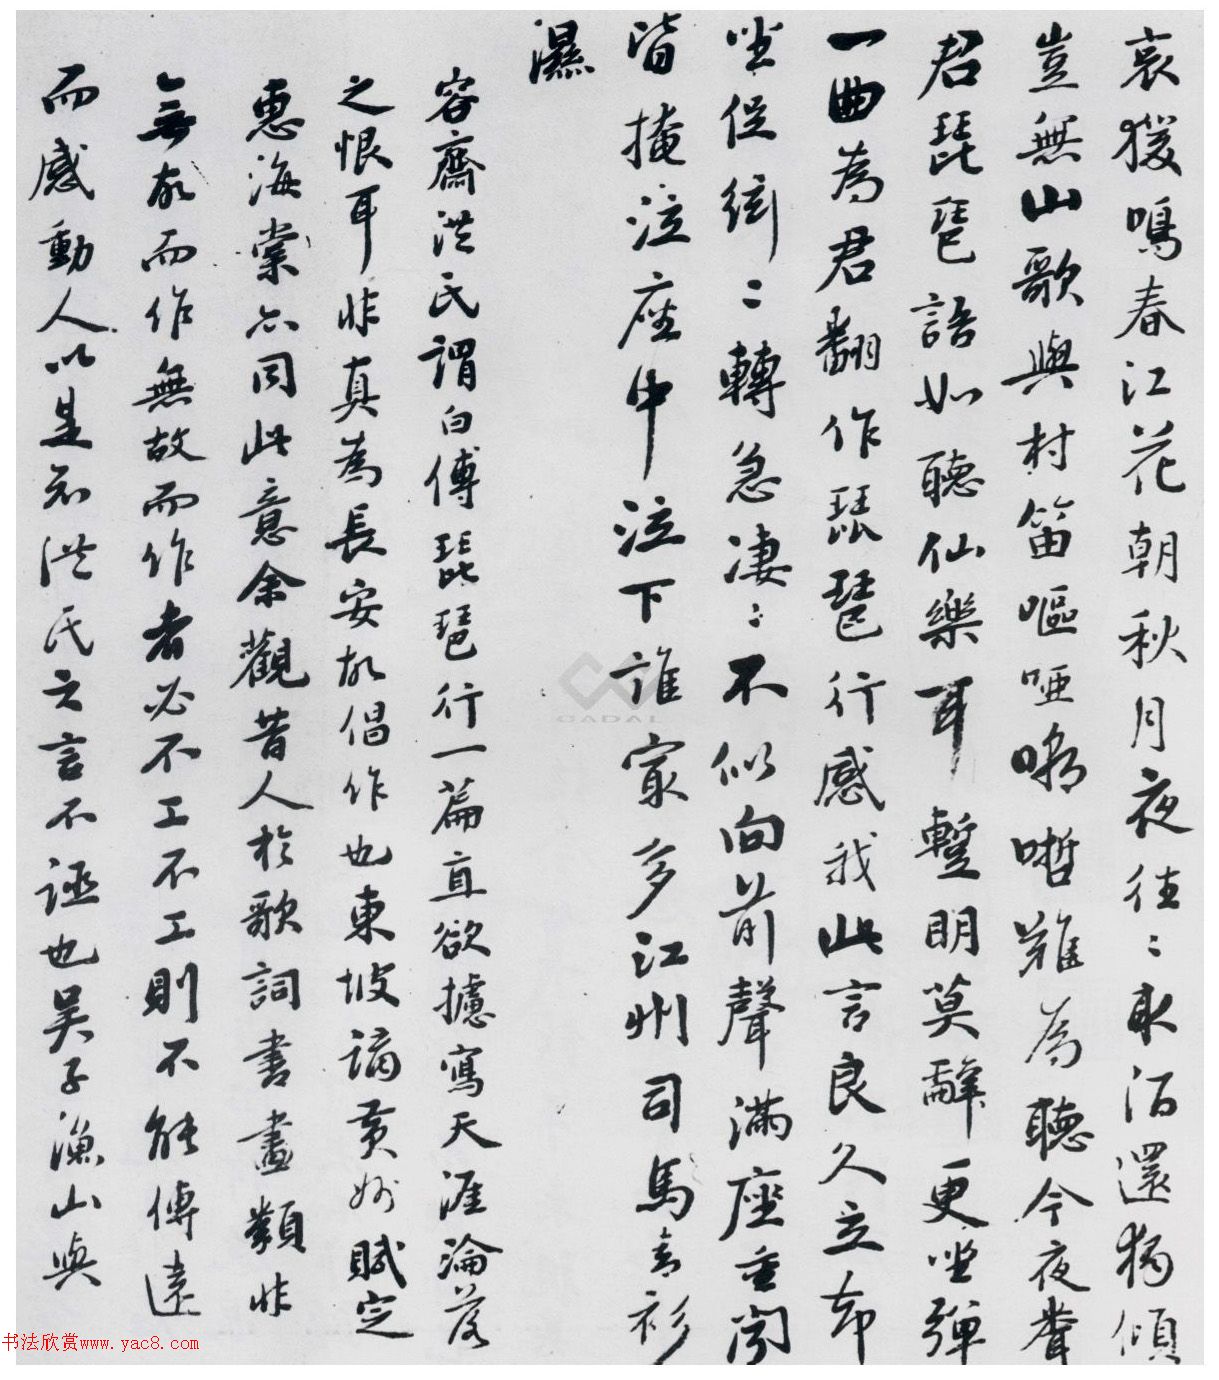 哀猨鳴春江花朝秋月夜往〻取酒還獨傾
豈無山歌與村笛嘔啞嘲哳難為聽今夜聞
君琵琶語如聽仙樂耳蹔明莫辭更坐彈
一曲為君翻作琵琶行感我此言良久立却
坐促絃〻轉急凄〻不似向前聲滿座重聞
皆掩泣座中泣下誰寂多江州司馬青衫
濕
容齋洪氏謂白傅琵琶行一篇直欲攄寫天涯淪落
之恨耳非真為長安故倡作也東坡謫黃州賦定
惠海棠亦同此意余觀昔人於歌詞書畫類非
無故而作無故而作者必不工不工則不能傳遠
而感動人以是知洪氏之言不誣也吴子漁山與
CADAL
书法欣赏www.yac8.com